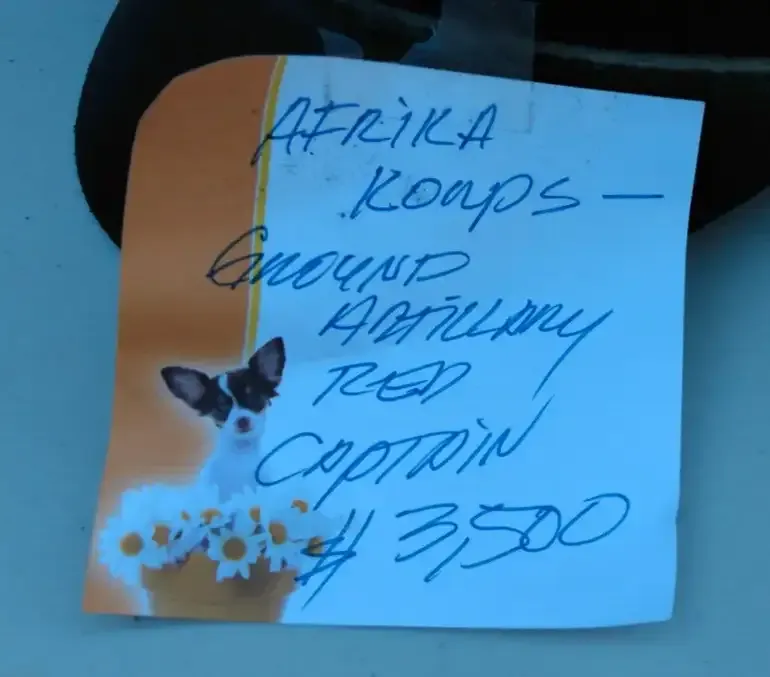 AFRIKA
KORPS —
GROUND
ARTILLARY
RED
CAPTAIN
$ 3,500